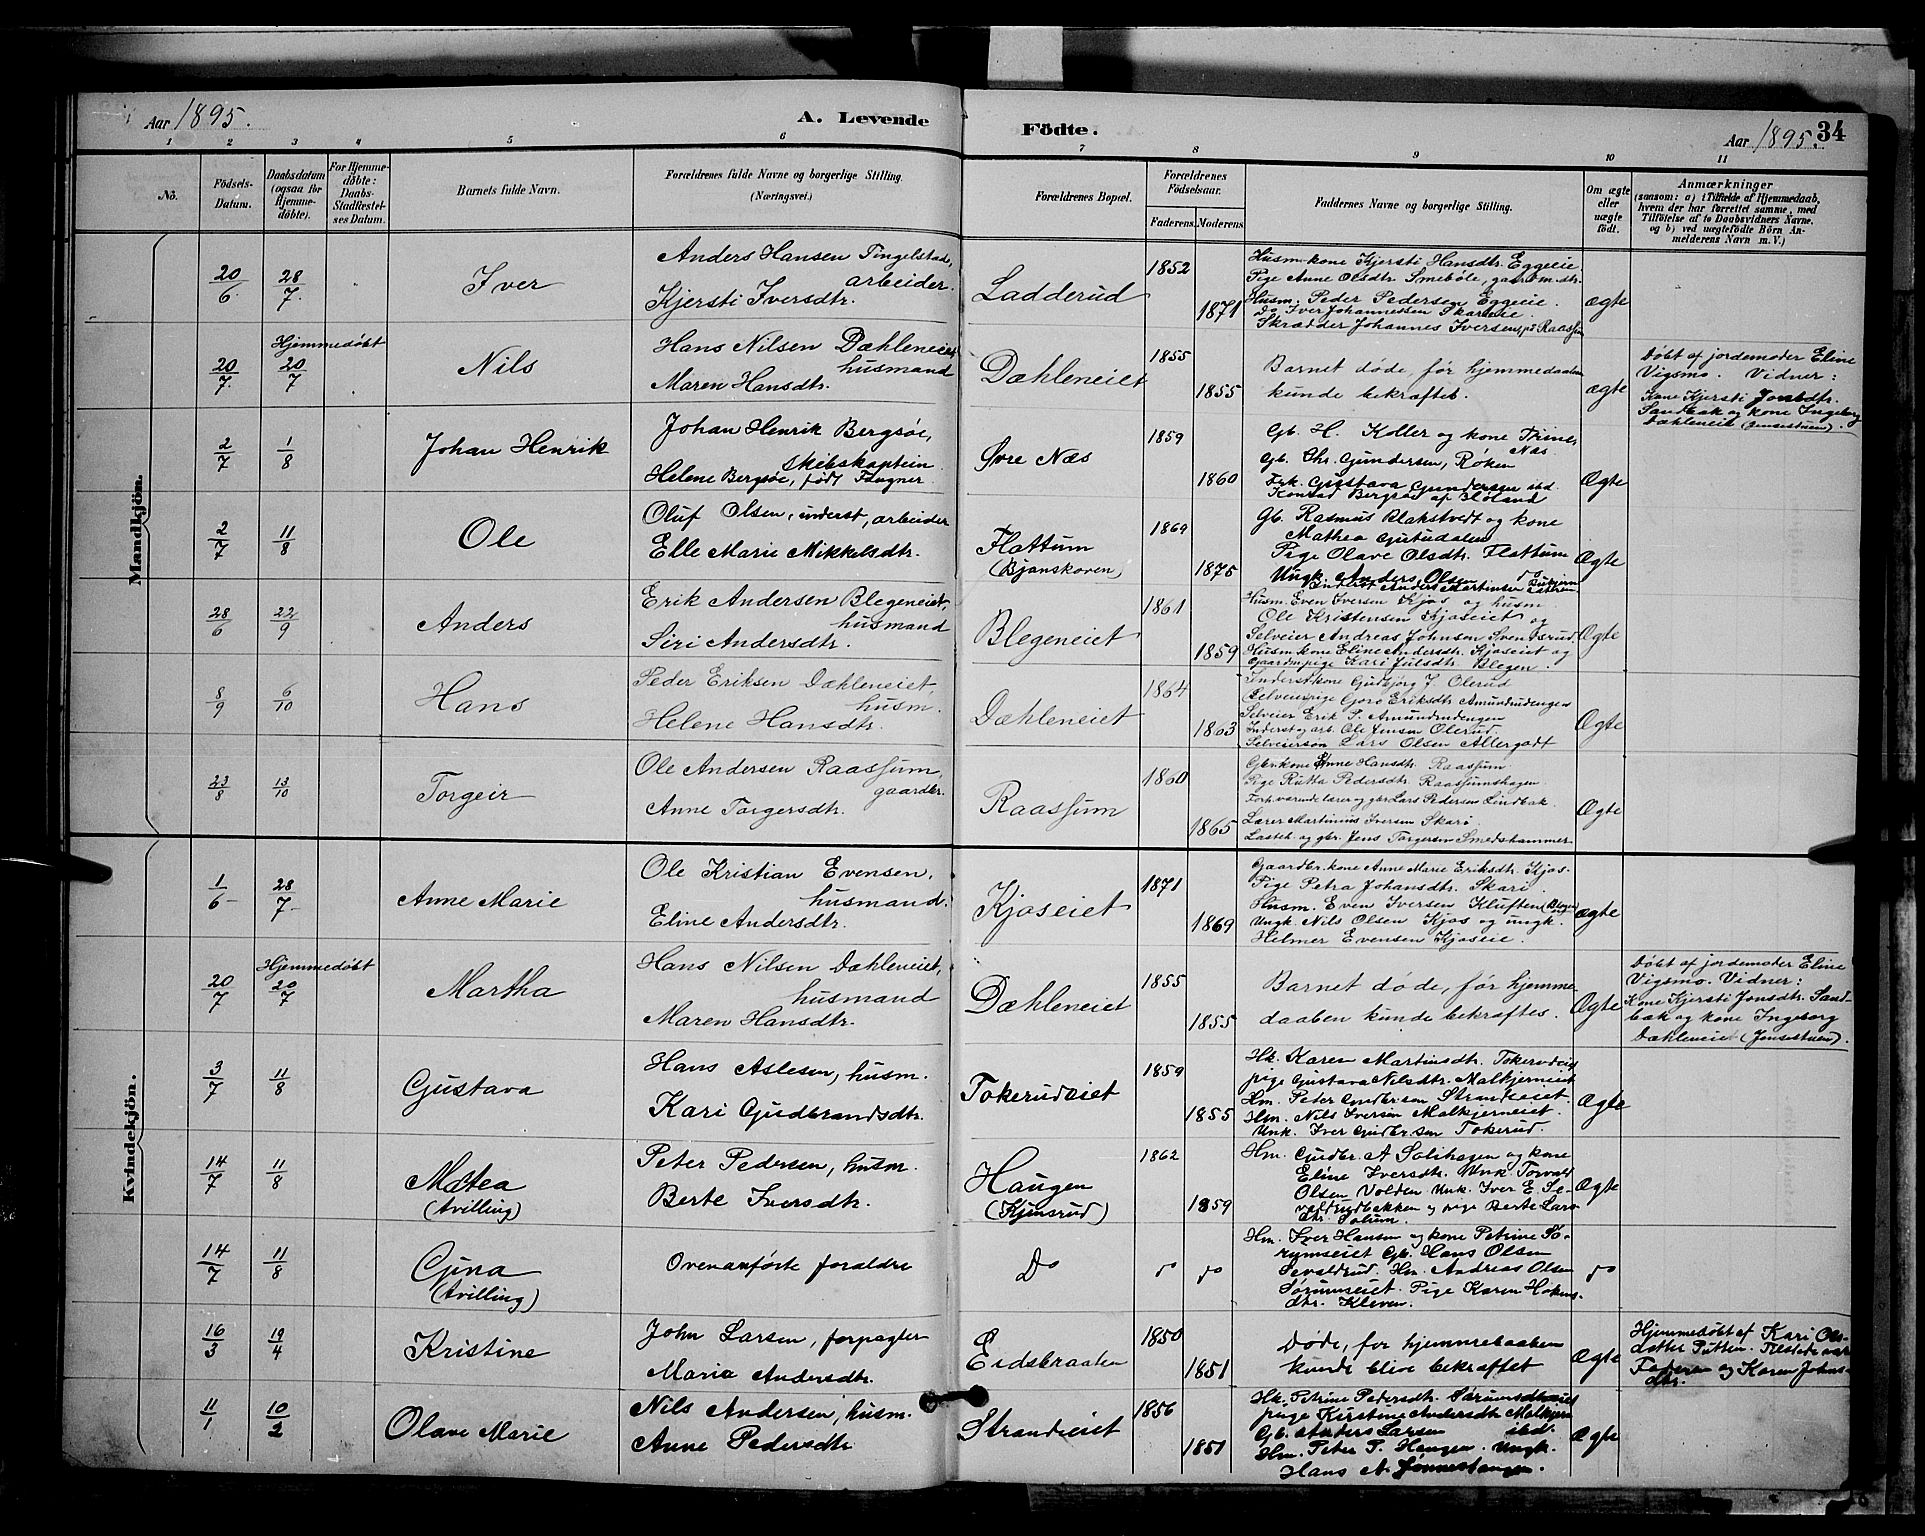 Aar 1895.
A. Levende Födte.
Aar 1895. 34
1 2 3 4 5 6 7 8 9 10 11
No.
Födsels-Datum.
Daabsdatum (ogsaa for Hjemmedöbte).
For Hjemmedöbte: Daabs-Stadfæstelses Datum.
Barnets fulde Navn.
Forældrenes fulde Navne og borgerlige Stilling. (Næringsvei.)
Forældrenes Bopæl.
Forældrenes Födselsaar.
Faderens. Moderens.
Faddernes Navne og borgerlige Stilling.
Om ægte eller uægte födt.
Anmærkninger
(saasom: a) i Tilfælde af Hjemmedaab, hvem der har forrettet samme, med Tilföielse af to Daabsvidners Navne, og b) ved uægtefödte Börn Anmelderens Navn m. V.)
Mandkjön.
20/6 28/7 Iver
Anders Hansen Tingelstad, arbeider.
Kjersti Iversdtr.
Ladderud 1852 1871
Husm.kone Kjersti Hansdtr. Eggeie
Pige Anne Olsdtr. Smeböle, gaardm.dtr.
Husm. Peder Pedersen Eggeie.
Do Iver Johannessen Skareie.
Skrædder Johannes Iversen, på Raassum
Ægte
20/7 Hjemmedøbt 20/7 Nils
Hans Nilsen Dæhleneiet husmand
Maren Hansdtr.
Dæhleneiet 1855 1855
Barnet døde, før hjemmedaaben
kunde bekræftes.
Ægte
Døbt af jordemoder Eline
Vigsmo. Vidner:
Kone Kjersti Jonsdtr.
Sandbak og kone Ingeborg
Dæhleneie (Jensestuen).
2/7 1/8 Johan Henrik
Johan Henrik Bergsøe, Skibskaptein
Helene Bergsøe, født Fougner
Øvre Næs 1859 1860
Gb. H. Koller og kone Trine, Næs
Gb. Chr. Gundersen, Røken
Frk. Gustava Gundersen ibd.
Ægte
2/7 11/8 Ole
Oluf Olsen, inderst, arbeider
Elle Marie Mikkelsdtr.
Flattum (Bjonskoven) 1869 1875
Gb. Rasmus Blakstvedt og kone
Mathea
Pige Olave Olsdtr. Flattum
Ungk Anders Olsen do
Ægte
28/6 22/9 Anders
Erik Andersen Blegeneiet, husmand
Siri Andersdtr.
Blegeneiet 1861 1859
Husm. Even Iversen Kjos og husm
Ole Kristensen Kjoseiet og
Selveier Andreas Johnsen Svendsrud.
Husm.kone Eline Andersdtr. Kjoseiet og
Gaardm.pige Kari Julsdtr. Blegen.
Ægte
8/9 6/10 Hans
Peder Eriksen Dæhleneiet, husm.
Helene Hansdtr.
Dæhleneiet 1864 1863
Inderstkone Gudbjør J. Olerud
Selveierpige Goro Eriksdtr Amundrudengen
Selveier Erik P. Amundrudengen
Inderst og arb. Ole Jensen Olerud.
Selveiersøn Lars Olsen Allergodt
Ægte
23/8 13/10 Torgeir
Ole Andersen Raassum, gaardbr.
Anne Torgersdtr.
Raassum 1860 1865
Gbr.kone Anne Hansdtr. Raassum
Pige Rutta Pedersdtr. Raassumshagen
Forh.værende lærer og gbr. Lars Pedersen Lindbak.
Lærer Martinius Iversen Skari
og gbr. Jens Torgersen Smedshammer
Ægte
Kvindekjön.
1/6 28/7 Anne Marie
Ole Kristian Evensen, husmand.
Eline Andersdtr.
Kjoseiet 1871 1869
Gaardbr.kone Anne Marie Eriksdtr. Kjos.
Pige Petra Johansdtr. Skari.
Husm. Even Iversen Kluften (Blegen)
Ungk. Nils Olsen Kjos og ungk.
Helmer Evensen Kjoseie.
Ægte
20/7 Hjemmedøbt 20/7 Martha
Hans Nilsen Dæhleneiet, husmand
Maren Hansdtr.
Dæhleneiet 1855 1855
Barnet døde, før hjemme-
daaben kunde bekræftes.
Ægte
Døbt af jordemoder Eline
Vigsmo. Vidner:
Kone Kjersti Jonsdtr. Sand-
bak og kone Ingeborg
Dæhleneiet (Jensestuen).
3/7 11/8 Gustava
Hans Aslesen, husm.
Kari Gudbrandsdtr.
Tokerudeiet 1859 1855
Hk. Karen Martinsdtr. Tokerudeiet
pige Gustava Nilsdtr. Malkjerneiet
Hm. Peder Gudbr.sen Strandeiet.
Hm. Nils Iversen Malkjerneiet.
Unk. Iver Gudbr.sen Tokerud.
Ægte
14/7 11/8 Mathea (tvilling)
Peter Pedersen, husm.
Berte Iversdtr.
Haugen (Kjensrud) 1862 1859
Hm. Gudbr. A Solihagen og kone
Eline Iversdtr. Unk Torvald
Olsen Volden Unk. Iver E. Se-
valdrudbakken og pige Berte Lars-
dtr. Solum.
Ægte
14/7 11/8 Gina (tvilling)
Ovenanførte foraldre
Do do do
Hm. Iver Hansen og kone Petrine Sø-
rumseiet Gb. Hans Olsen
Sevaldrud. Hm. Andreas Olsen
Sørumseiet. Pige Karen Hokens-
dtr. Kleven.
do
16/3 19/4 Kristine
John Larsen, forpagter
Maria Andersdtr.
Eidsbraaten 1850 1851
Døde, før hjemmedaaben
kunde blive bekræftet
Ægte
Hjemmedøbt af Kari Ols-
datter Putten. Tilstede var
Faderen og Karen Johns-
dtr.
11/1 10/2 Olave Marie
Nils Andersen, husm.
Anne Pedersdtr
Strandeiet 1856 1851
Hk. Petrine Pedersdtr.
pige Kirstine Andersdtr. Malkjern
Gb. Anders Larsen ibd.
Hm. Peter P. Haugen. Ungk.
Hans A.
Ægte